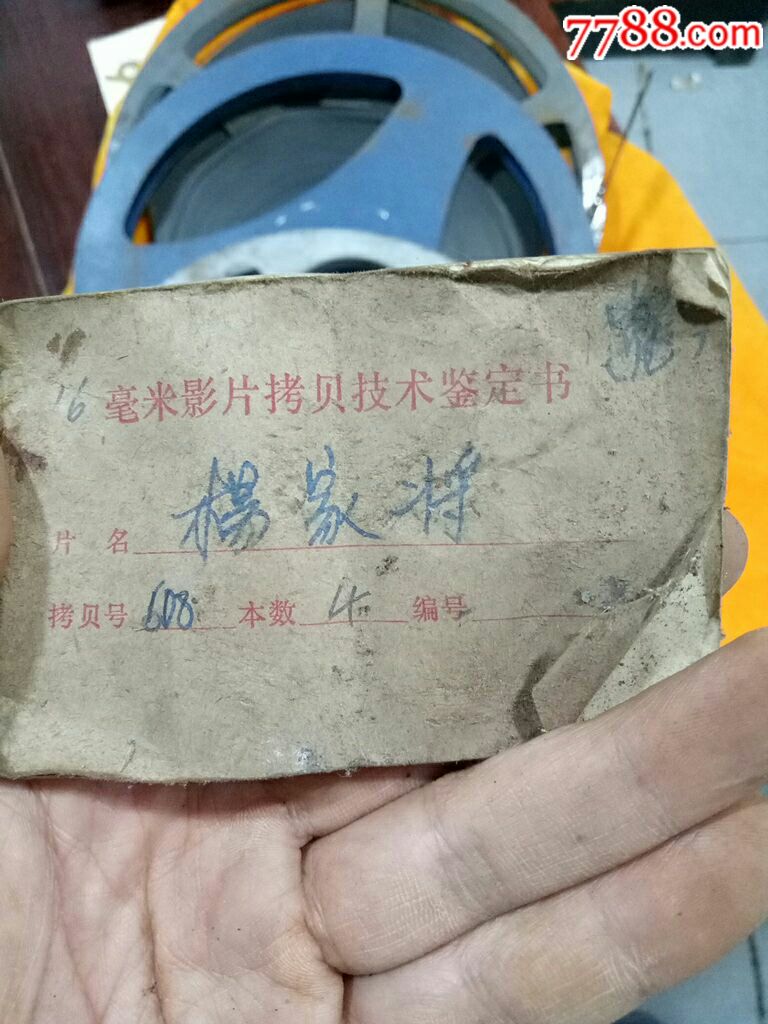 7788.com
16 毫米影片拷贝技术鉴定书
片 名 楊家将
拷贝号 608 本数 4 编号